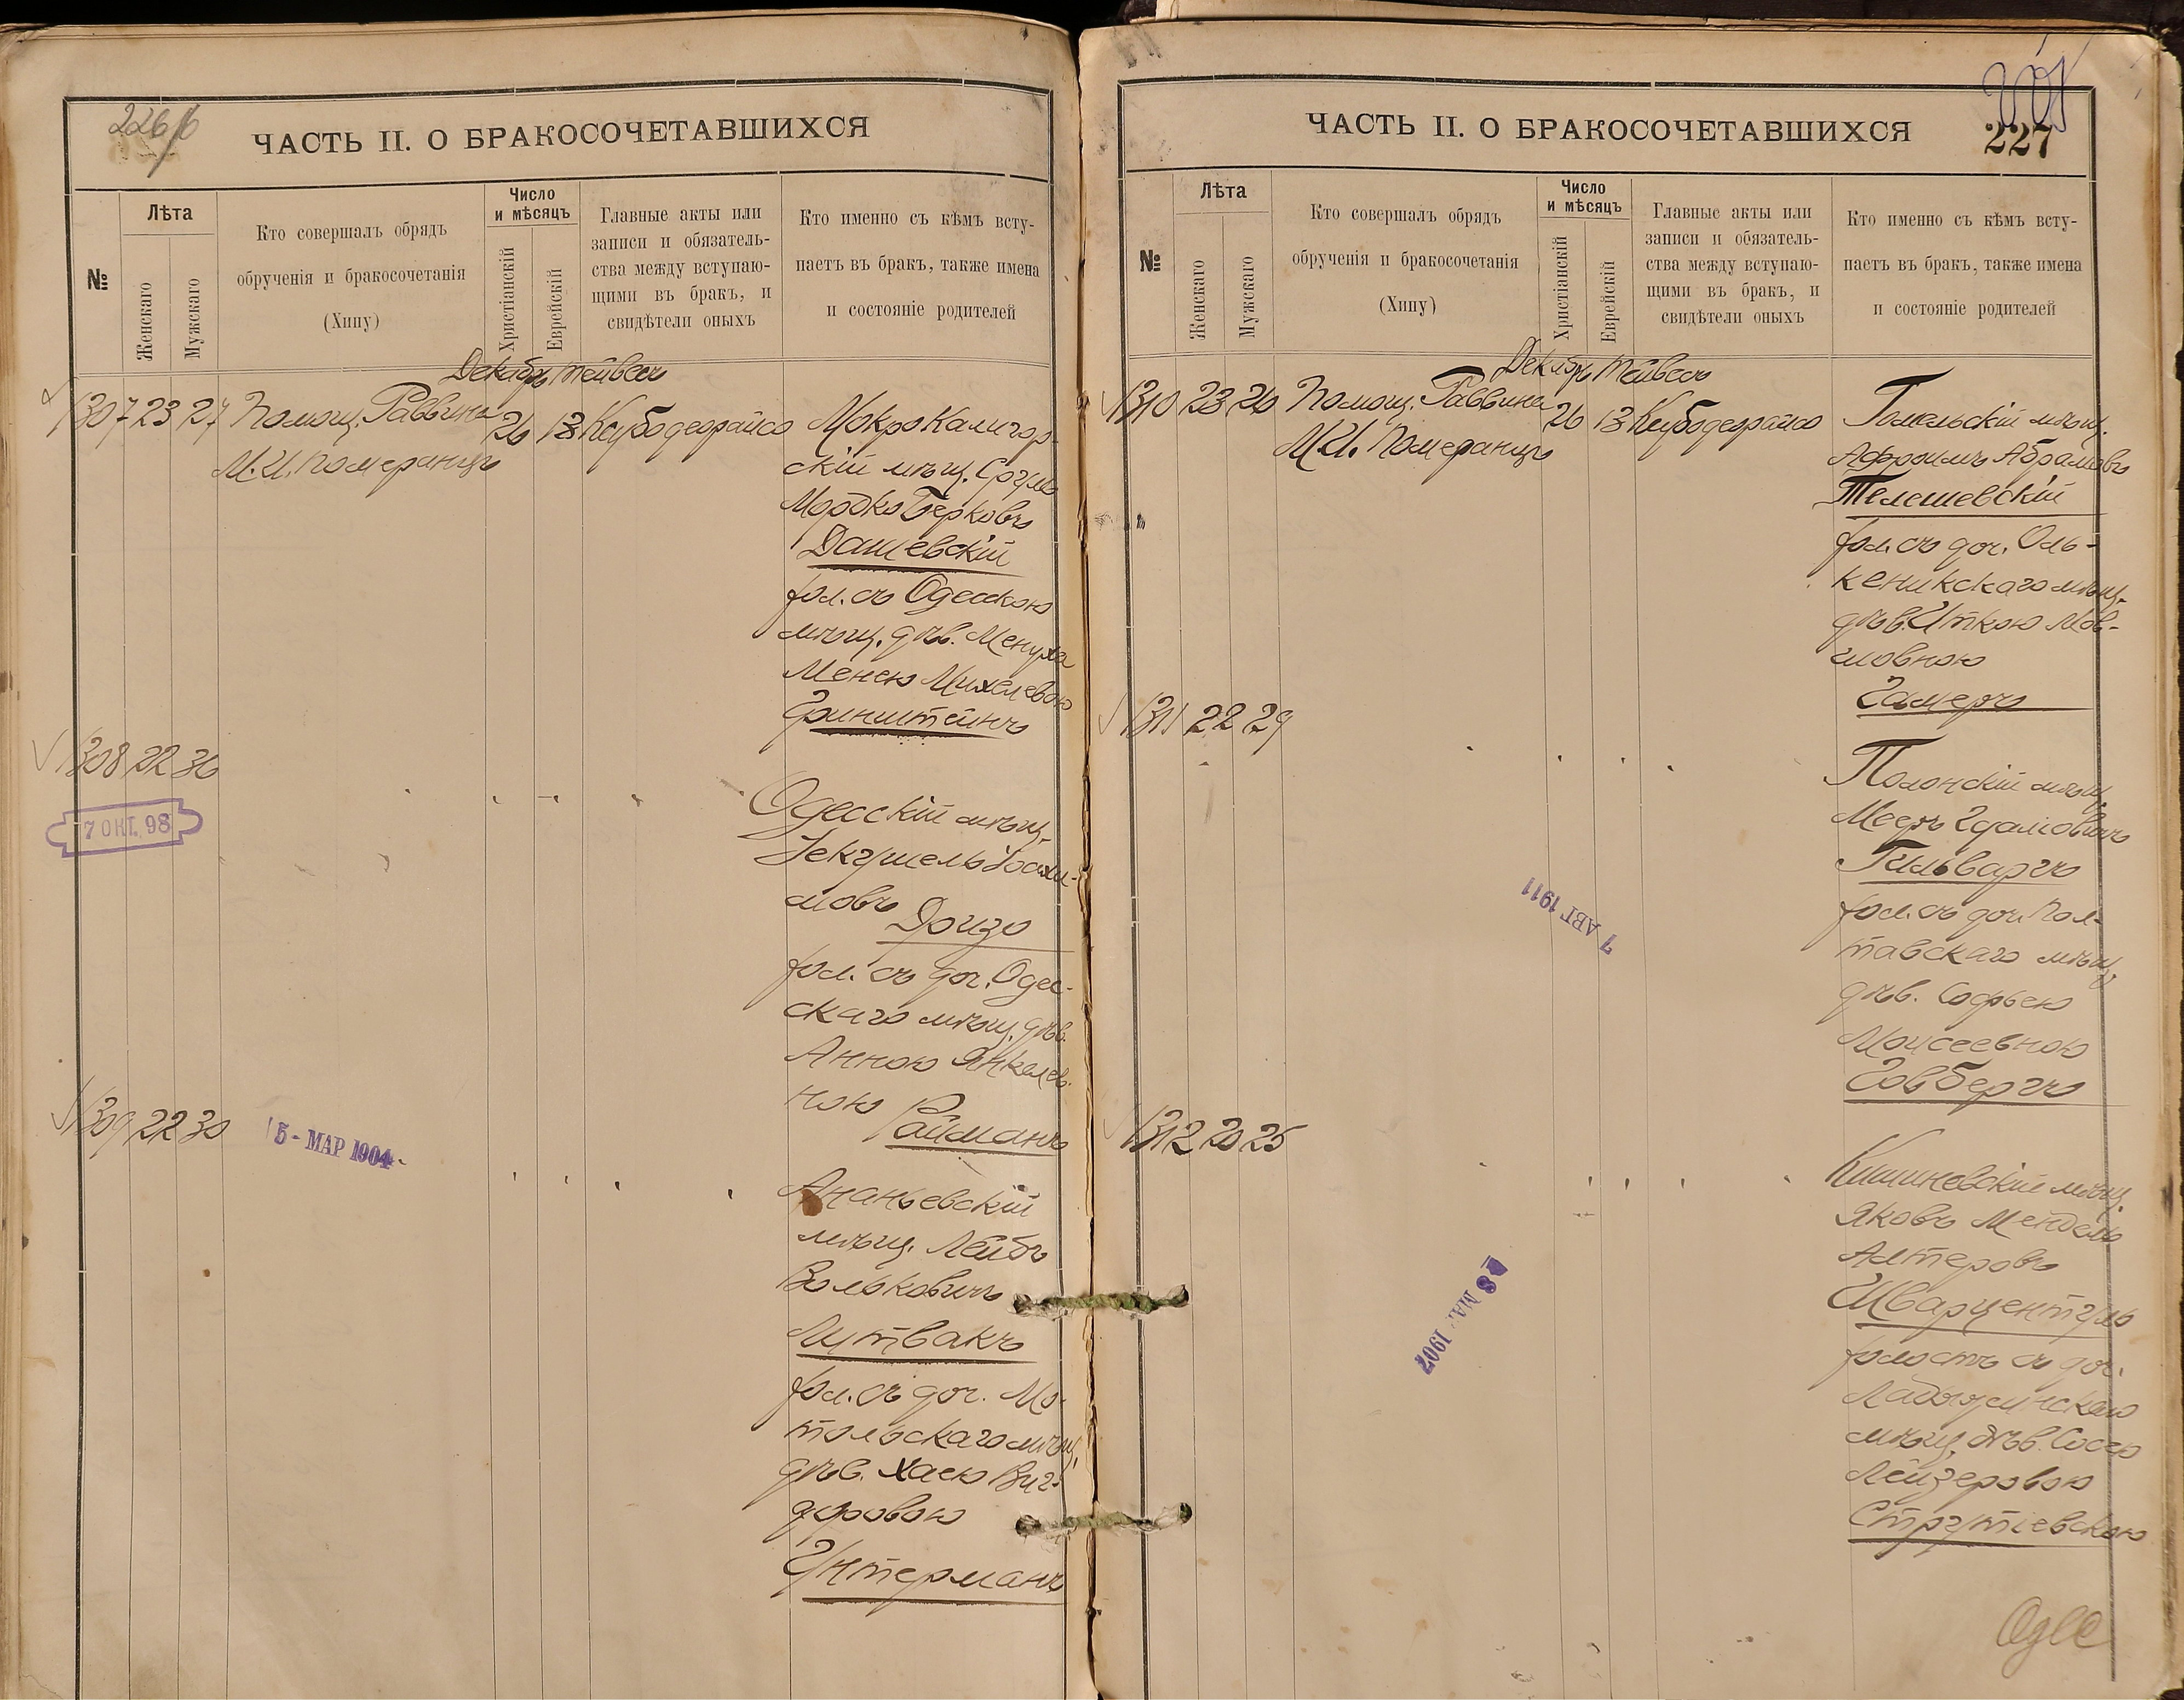 226/б
ЧАСТЬ II. О БРАКОСОЧЕТАВШИХСЯ
№
Лѣта
Женскаго
Мужскаго
Кто совершалъ обрядъ
обрученія и бракосочетанія
(Хипу)
Число
и мѣсяцъ
Христіанскій
Еврейскій
Главные акты или
записи и обязатель-
ства между вступаю-
щими въ бракъ, и
свидѣтели оныхъ
Кто именно съ кѣмъ всту-
паетъ въ бракъ, также имена
и состояніе родителей
Декабрь Тейвесъ
1307 23 27 Помощ. Раввина 26 13 Ксубодеорайсо
М.И. Померанцъ
Мокро Калигор-
скій мѣщ. Сруль
Мордко Берковъ
Дашевскій
хол. съ Одесскою
мѣщ. дѣв. Менуха
Менею Михелевою
Финштейнъ
1308 22 30
7 ОКТ. 98
Одесскій мѣщ.
Іекушель Іоахи-
мовъ Дризо
хол. съ доч. Одес-
скаго мѣщ. дѣв.
Анною Янкелев-
ною Райманъ
1309 22 30
5 - МАР 1904
Ананьевскій
мѣщ. Лейбъ
Вольковичъ
Литвакъ
хол. съ доч. Мо-
тольскаго мѣщ.
дѣв. Хаею Виг-
доровою
Унтерманъ
ЧАСТЬ II. О БРАКОСОЧЕТАВШИХСЯ
227
№
Лѣта
Женскаго
Мужскаго
Кто совершалъ обрядъ
обрученія и бракосочетанія
(Хипу)
Число
и мѣсяцъ
Христіанскій
Еврейскій
Главные акты или
записи и обязатель-
ства между вступаю-
щими въ бракъ, и
свидѣтели оныхъ
Кто именно съ кѣмъ всту-
паетъ въ бракъ, также имена
и состояніе родителей
Декабрь Тейвесъ
1310 23 26 Помощ. Раввина 26 13 Ксубодеорайсо
М.И. Померанцъ
Гомельскій мѣщ.
Афроимъ Абрамовъ
Телешевскій
хол. съ доч. Оль-
кеникскаго мѣщ.
дѣв. Иткою Мов-
шовною
Гамеръ
1311 22 29
7 АВГ 1911
Полонскій мѣщ.
Мееръ Удамовичъ
Гильваргъ
хол. съ доч. Пол-
тавскаго мѣщ.
дѣв. Софьею
Моисеевною
Говбергъ
1312 20 25
8 МАР 1907
Кишиневскій мѣщ.
Яковъ Мендель
Алтеровъ
Шварцентуль
холостъ съ доч.
Ладыжинскаго
мѣщ. дѣв. Сосею
Лейзеровою
Струтіевскою
Одес